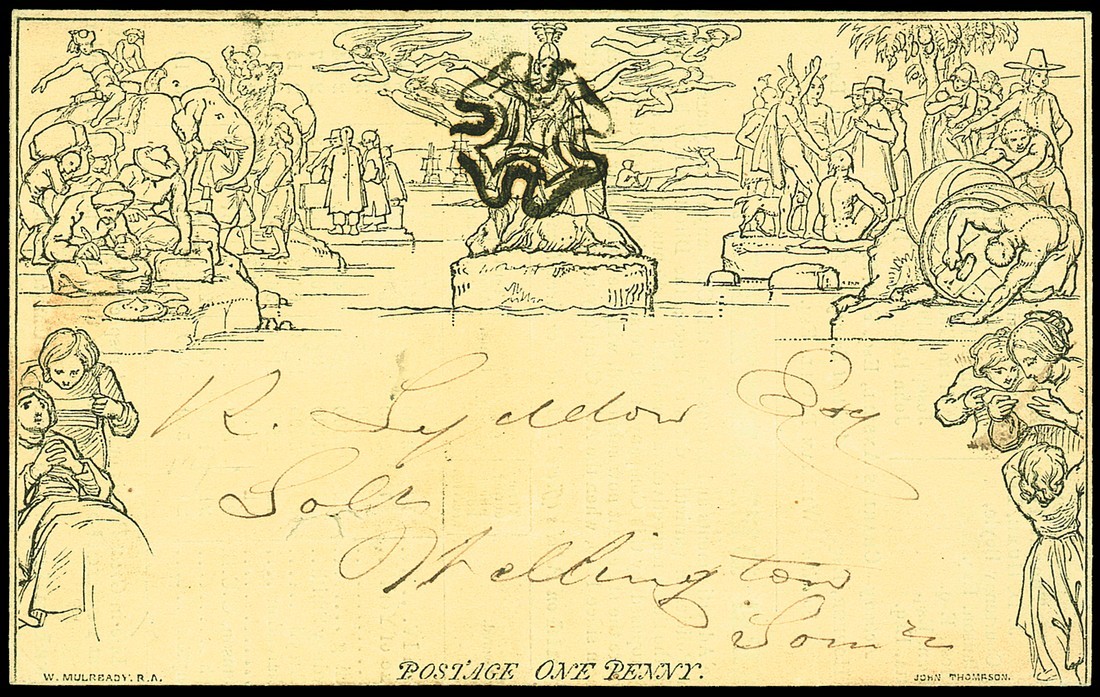 R. Lyddon Esq
Solr
Wellington
Somr
POSTAGE ONE PENNY.
W. MULREADY. R.A.
JOHN THOMPSON.